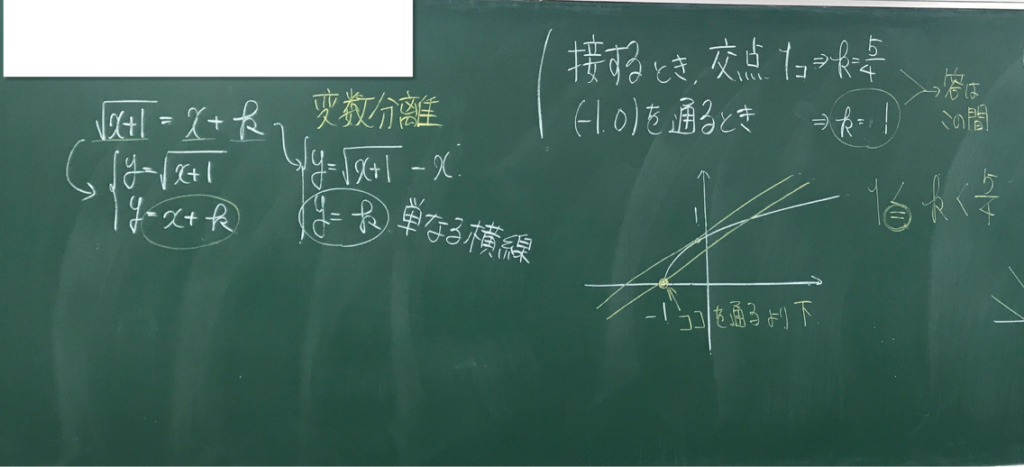 変数分離
√x+1 = x + k
{ y=√x+1
y= x + k
{ y=√x+1 - x
y= k 単なる横線
接するとき、交点1コ⇒k=5/4
(-1.0)を通るとき ⇒ k=1
→答は
この間
1≦k<5/4
1
-1 ココを通るより下